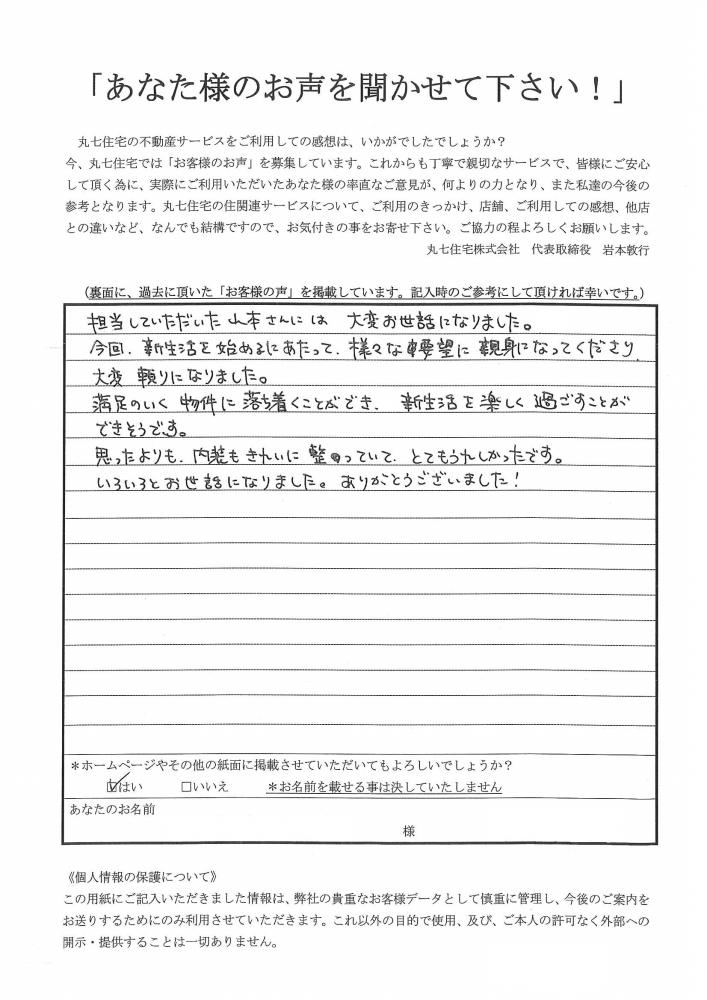 「あなた様のお声を聞かせて下さい！」
丸七住宅の不動産サービスをご利用しての感想は、いかがでしたでしょうか？
今、丸七住宅では「お客様のお声」を募集しています。これからも丁寧で親切なサービスで、皆様にご安心
して頂く為に、実際にご利用いただいたあなた様の率直なご意見が、何よりの力となり、また私達の今後の
参考となります。丸七住宅の住関連サービスについて、ご利用のきっかけ、店舗、ご利用しての感想、他店
との違いなど、なんでも結構ですので、お気付きの事をお寄せ下さい。ご協力の程よろしくお願いします。
丸七住宅株式会社　代表取締役　岩本敦行
（裏面に、過去に頂いた「お客様の声」を掲載しています。記入時のご参考にして頂ければ幸いです。）
担当していただいた山本さんには 大変お世話になりました。
今回、新生活を始めるにあたって、様々な要望に親身になってくださり、
大変 頼りになりました。
満足のいく 物件に落ち着くことができ、新生活を楽しく過ごすことが
できそうです。
思ったよりも、内装もきれいに整っていて、とてもうれしかったです。
いろいろとお世話になりました。ありがとうございました！
＊ホームページやその他の紙面に掲載させていただいてもよろしいでしょうか？
☑はい　□いいえ　＊お名前を載せる事は決していたしません
あなたのお名前
様
《個人情報の保護について》
この用紙にご記入いただきました情報は、弊社の貴重なお客様データとして慎重に管理し、今後のご案内を
お送りするためにのみ利用させていただきます。これ以外の目的で使用、及び、ご本人の許可なく外部への
開示・提供することは一切ありません。